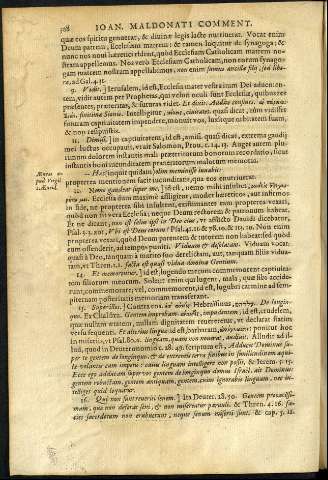 308 IOAN. MALDONATI COMMENT.
quæ eos spiritu genuerat, & divinæ legis lacte nutrierat. Vocat enim
Deum patrem, Ecclesiam matrem: & tamen loquitur de synagoga; &
nunc nos novi hæretici rident, quòd Ecclesiam Catholicam matrem no-
stram appellemus. Nos verò Ecclesiam Catholicam, non eorum synago-
gam matrem nostram appellabimus, non enim sumus ancillæ filij, sed libe-
ræ, ad Gal. 4. 31.
9. Vidit, ] Ierusalem, id est, Ecclesia mater vestra iram Dei
tem, vidit autem per Prophetas, qui velut oculi sunt Ecclesiæ, quibus res
præsentes, præteritas, & futuras videt. Et dixit: Audite
Sion, finitimæ Sionis. Intelligitur,
finitimas civitates, quasi dicat,
futuram captivitatem impendere, monui vos,
& non resipuistis.
11. Dimisi, ] in captivitatem, id est, amisi. quasi dicat, extrema gaudij
mei luctus occupavit, vt ait Salomon, Prou. c. 14. 13. Auget autem pluri-
mùm dolorem instantis mali præteritorum bonorum recordatio, sicut
instantis boni iucunditatem præteritorum malorum memoria.
— Hæc
propterea mentionem facit iucunditatis, qua eos enutrierat.
12. Nemo gaudeat super me, ] id est, nemo mihi insultet,
Ecclesia dum maximè affligitur, maximè
in fide, ne propterea sibi insultent, existimantes eam propterea
quòd non sit vera Ecclesia, neque Deum rectorem & patronum habeat.
Et ne dicant, non est salus ipsi in Deo eius, vt afflicto Davidi dicebatur,
Psal. 3. 3. aut, Vbi est Deus eorum? Psal. 41. 11. & 78. 10. & 113. 10. Non enim
propterea vexari, quòd Deum parentem & tutorem non haberet sed quòd
eum offenderit, ad tempus puniri. Viduam & desolatam. Viduam vocat,
quasi à Deo, tanquam à marito suo derelictam, aut, tanquam filiis vidua-
tam, vt Thren. 1. 1. facta est quasi vidua domina Gentium.
14. Et memoremini, ] id est, lugendo mecum commemorate captivita-
tem filiorum meorum. Solent enim qui lugent, mala, quæ sibi accide-
runt, commemorare; vel, commemorate, id est, lugubri carmine ad sem-
piternam posteritatis memoriam transferatis.
15. Super illos, ] Contra eos. Hebraismus, De longin-
quo. Et Chaldæa. Gentem improbam: improbè, impudentem, id est, crudelem,
quæ nullam ætatem, nullam dignitatem reuereretur, vt declarat statim
versu sequenti. Et alterius linguæ id est barbaram, ponitur hoc
in miseriis, vt Psal. 80. 6. linguam, quam non nouerat, audiuit. Alludit ad il-
lud, quod in Deuteronomio c. 28. 49. scriptum est, Adducet Dominus su-
per te gentem de longinquo, & de extremis terræ finibus in similitudinem aqui-
læ volantis cum impetu: cuius linguam intelligere non possis. & Ierem. 5. 15.
Ecce ego adducam super vos gentem de longinquo domus Israel, ait Dominus:
gentem robustam, gentem antiquam, gentem, cuius ignorabis linguam, nec in-
telliges quid loquatur.
16. Qui non sunt reueriti senem. ] Ita Deuter. 28. 50. Gentem procacissi-
mam, quæ non deferat seni, & non misereatur parvuli. & Thren. 4. 16. fa-
cies sacerdotum non erubuerunt, neque senum miserti sunt. & cap. 5. 12.